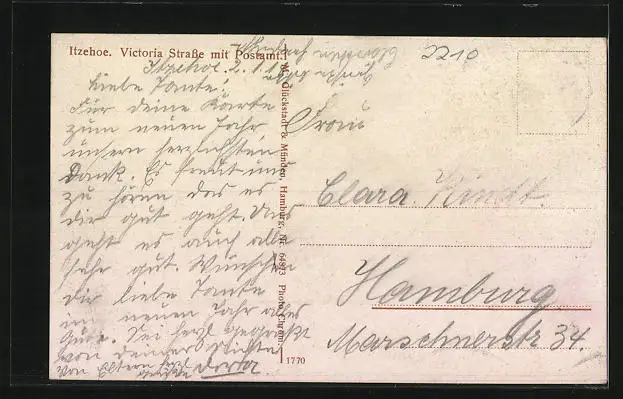 Itzehoe. Victoria Straße mit Postamt.
2210
Itzehoe. 2. 1.
Liebe Tante!
Für deine Karte
zum neuen Jahr
unsern herzlichsten
Dank. Es freut uns
zu hören das es
dir gut geht. Uns
geht es auch alle
sehr gut. Wünschen
dir liebe Tante
im neuen Jahr alles
Gute. Sei herzl gegrüßt
von deiner Nichte
von Eltern
M. Glückstadt & Münden, Hamburg. Nr. 6483 Photochromi
1770
Frau
Clara. Kindt.
Hamburg
Marschnerstr 34.